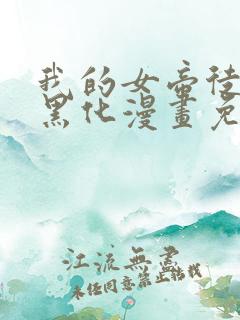 我的女帝徒
黑化漫畫免
江流無盡
未经同意禁止转载